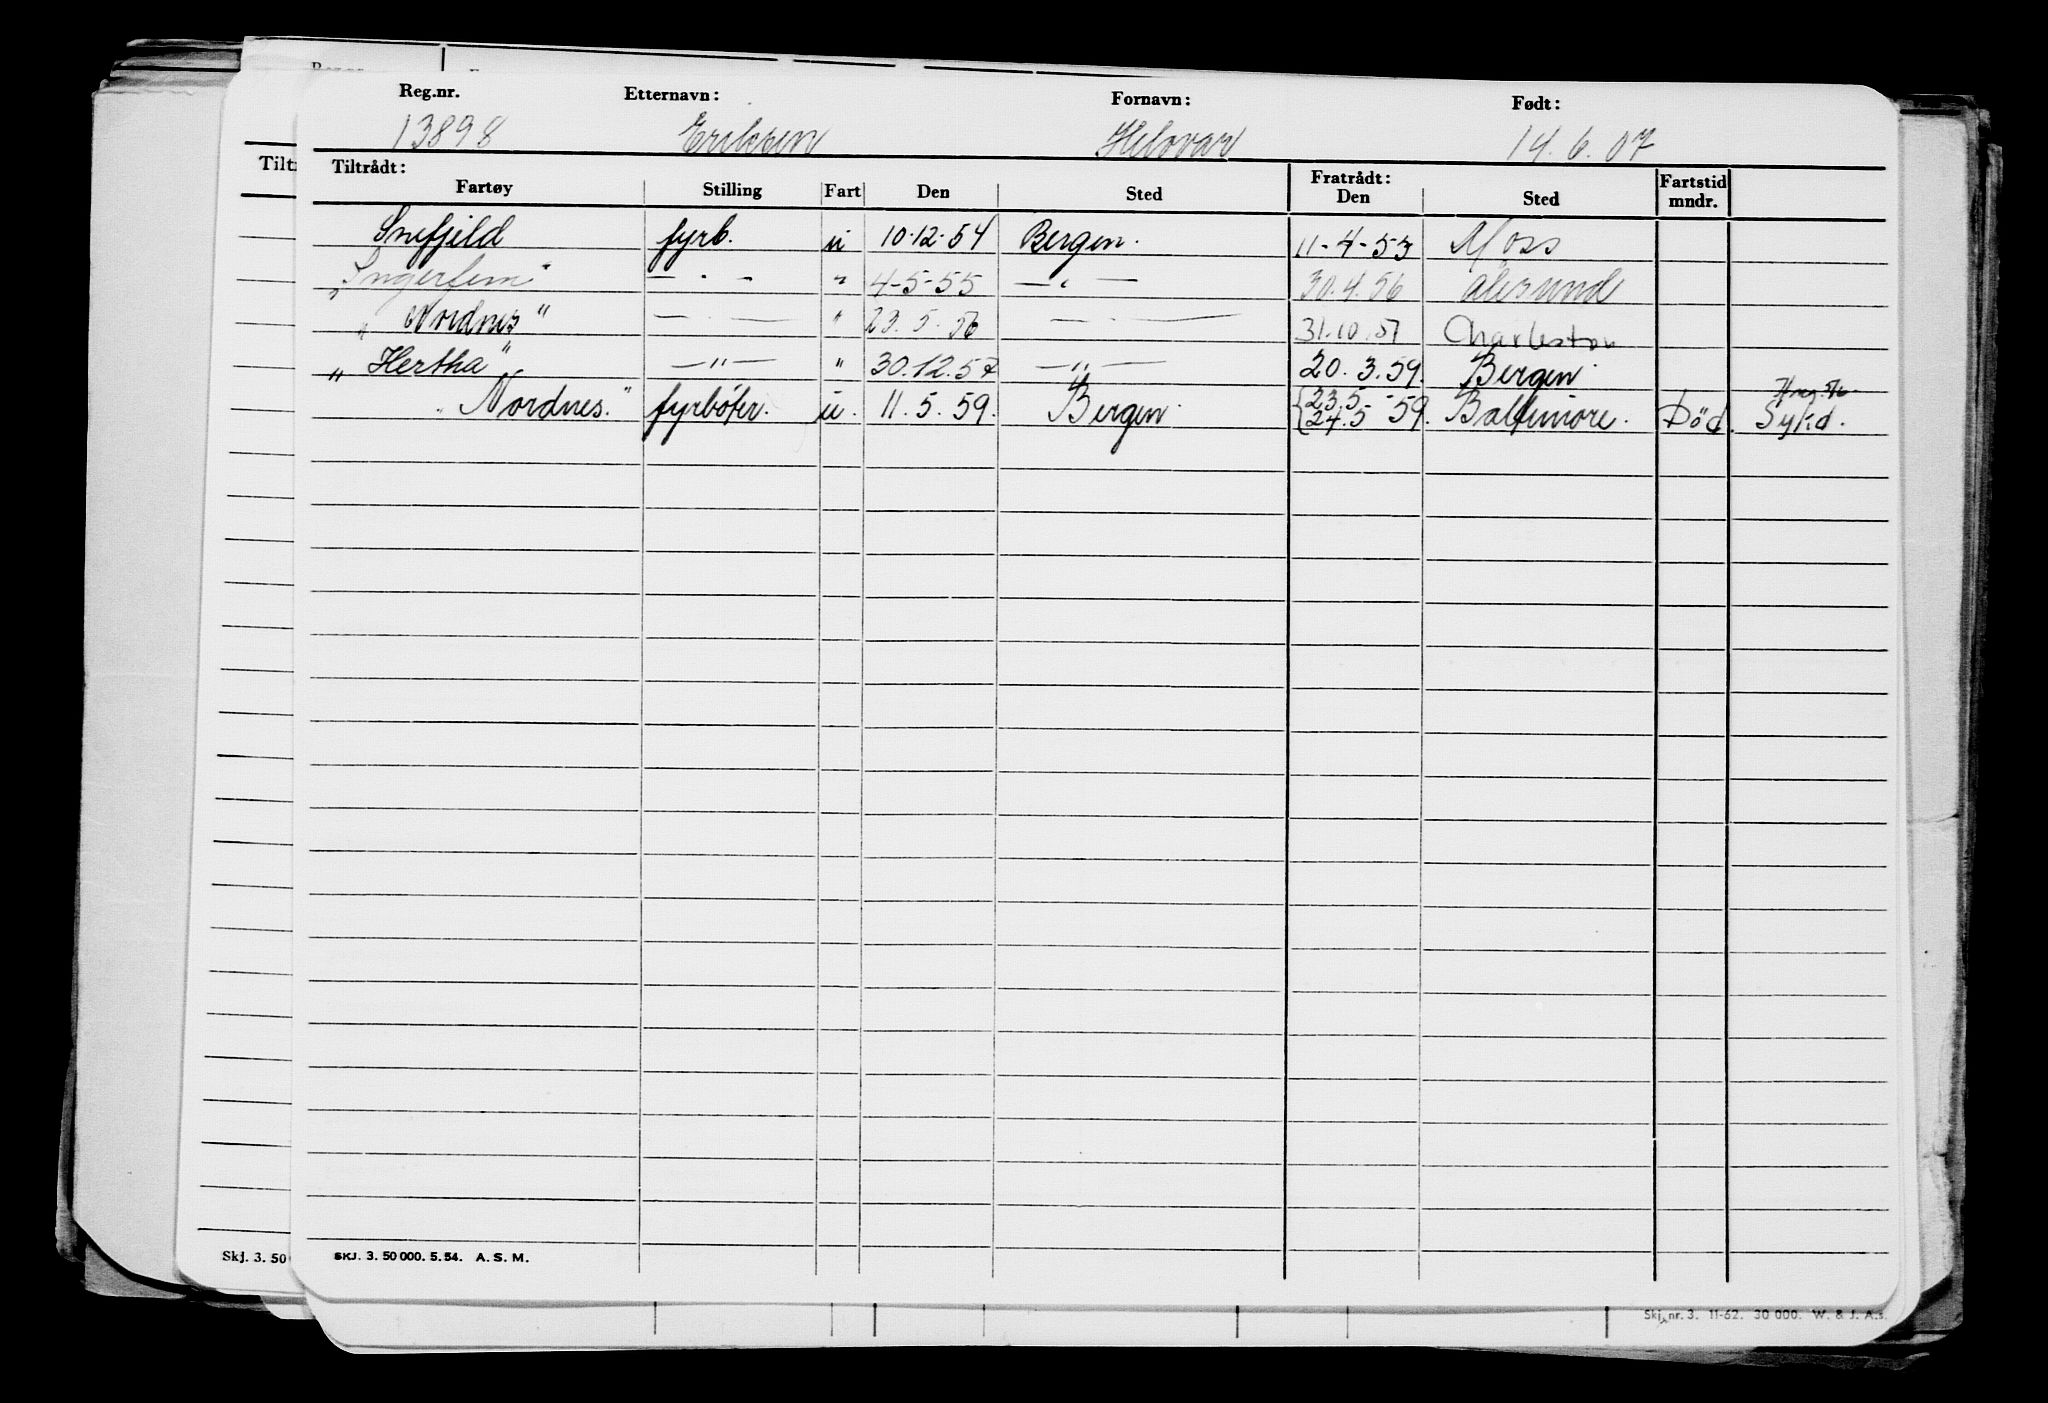 Reg.nr. Etternavn: Fornavn: Født:
13898 Eriksen Helovar 14.6.07
Tiltrådt: Fratrådt: Fartstid
Fartøy Stilling Fart Den Sted Den Sted mndr.
Snefjeld fyrb. u 10-12-54 Bergen. 11-4-55 Moss
„Ingerfem" — " — " 4-5-55 — " — 30.4.56 Ålesund
„Nordnes" — " — " 23.5.56 — " — 31.10.57 Charleston
„Hertha" — " — " 30.12.57 — " — 20.3.59. Bergen.
„Nordnes." fyrbøter. u. 11.5.59. Bergen. {23.5 - 59. Baltimore. Död. Sykd.
24.5
SKJ. 3. 50 000. 5. 54. A. S. M.
Tiltr
Skj. 3. 50
Skj. nr. 3. 11-62. 30 000. W. & J. A.s.